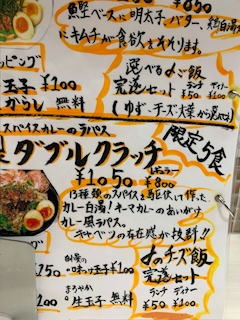 鰹ベースに明太子バター、純白湯
にキムチが食欲をそそります。
ッピング
玉子 ¥100
からし 無料
選べる〆ご飯
完造セット
ランチ ディナー
¥50 ¥100
(ゆず・チーズ・大葉から選べます)
スパイスカレーのラパス
限定5食
ダブルクラッチ
¥1050 レギュラー ¥800
13種類のスパイスを駆使して作った
カレー白湯!キーマカレーのあいがけ
カレー風ラパス。
キャベツの存在感が抜群!!
150
味つけ玉子 ¥100
まろやか
生玉子 無料
〆のチーズ飯
完造セット
ランチ ディナー
¥50 ¥100